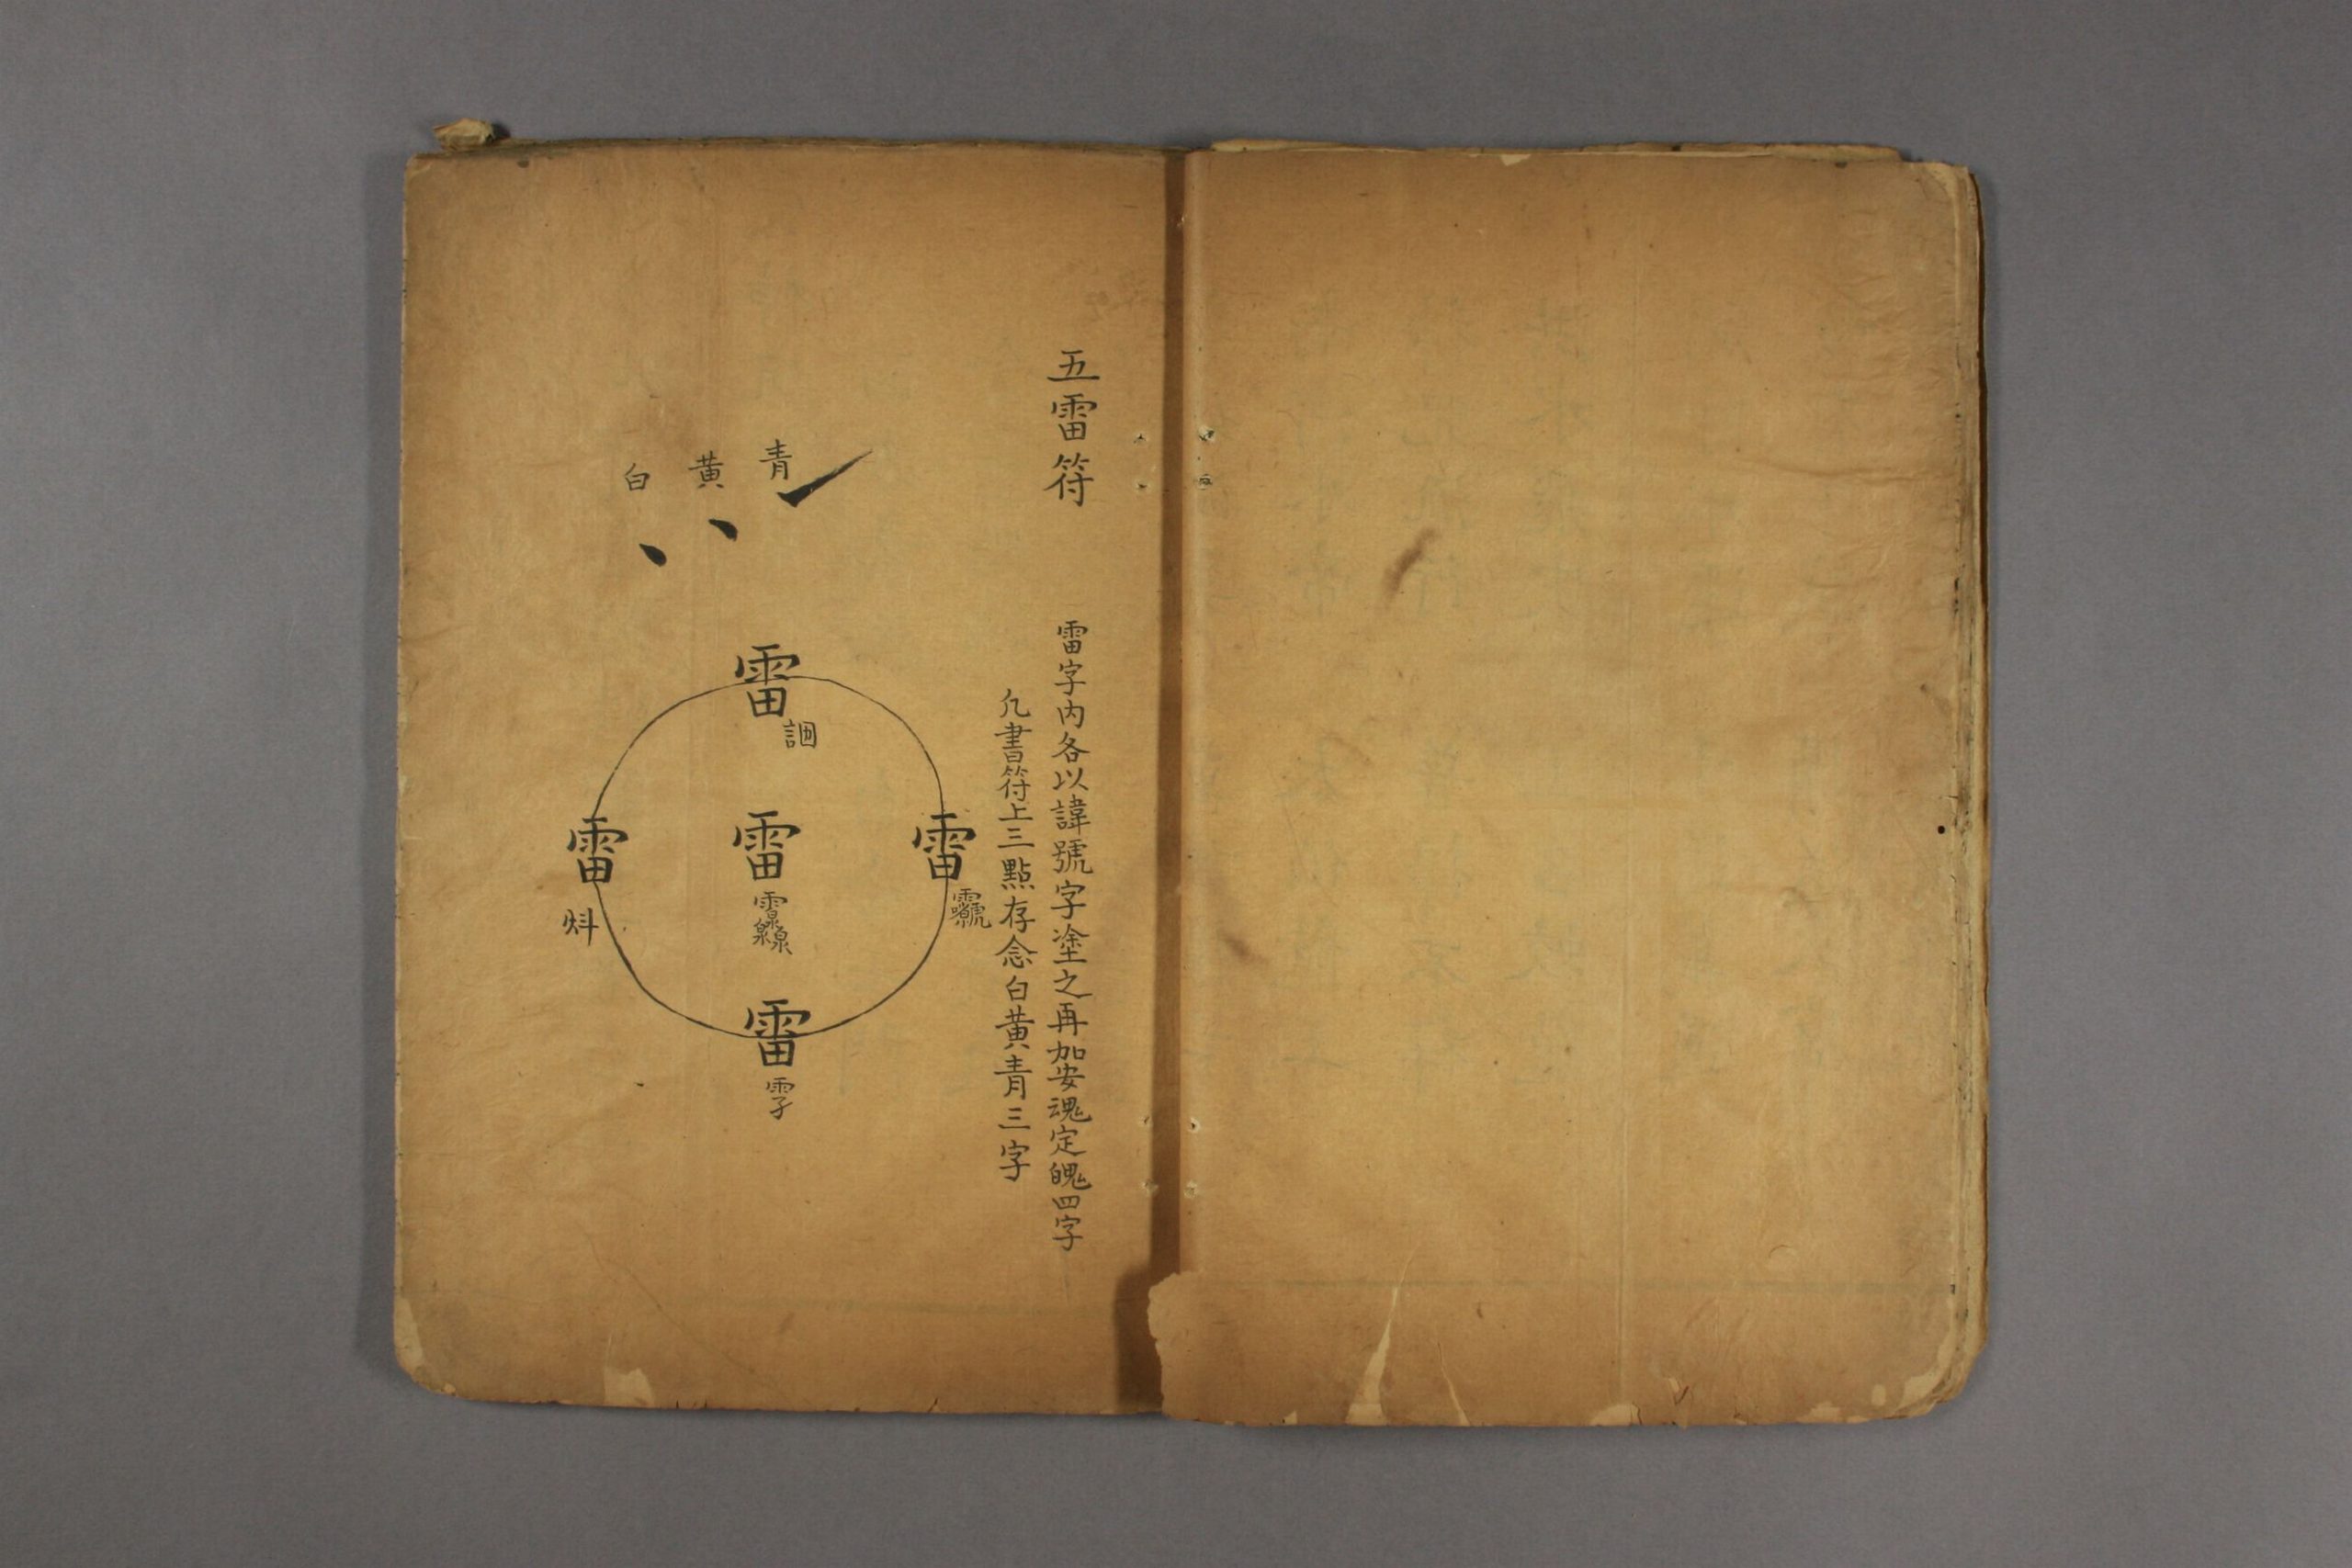 五雷符
雷字內各以諱號字塗之再加安魂定魄四字
凢書符上三㸃存念白黃青三字
青
黃
白
雷
雷
雷
雷
雷